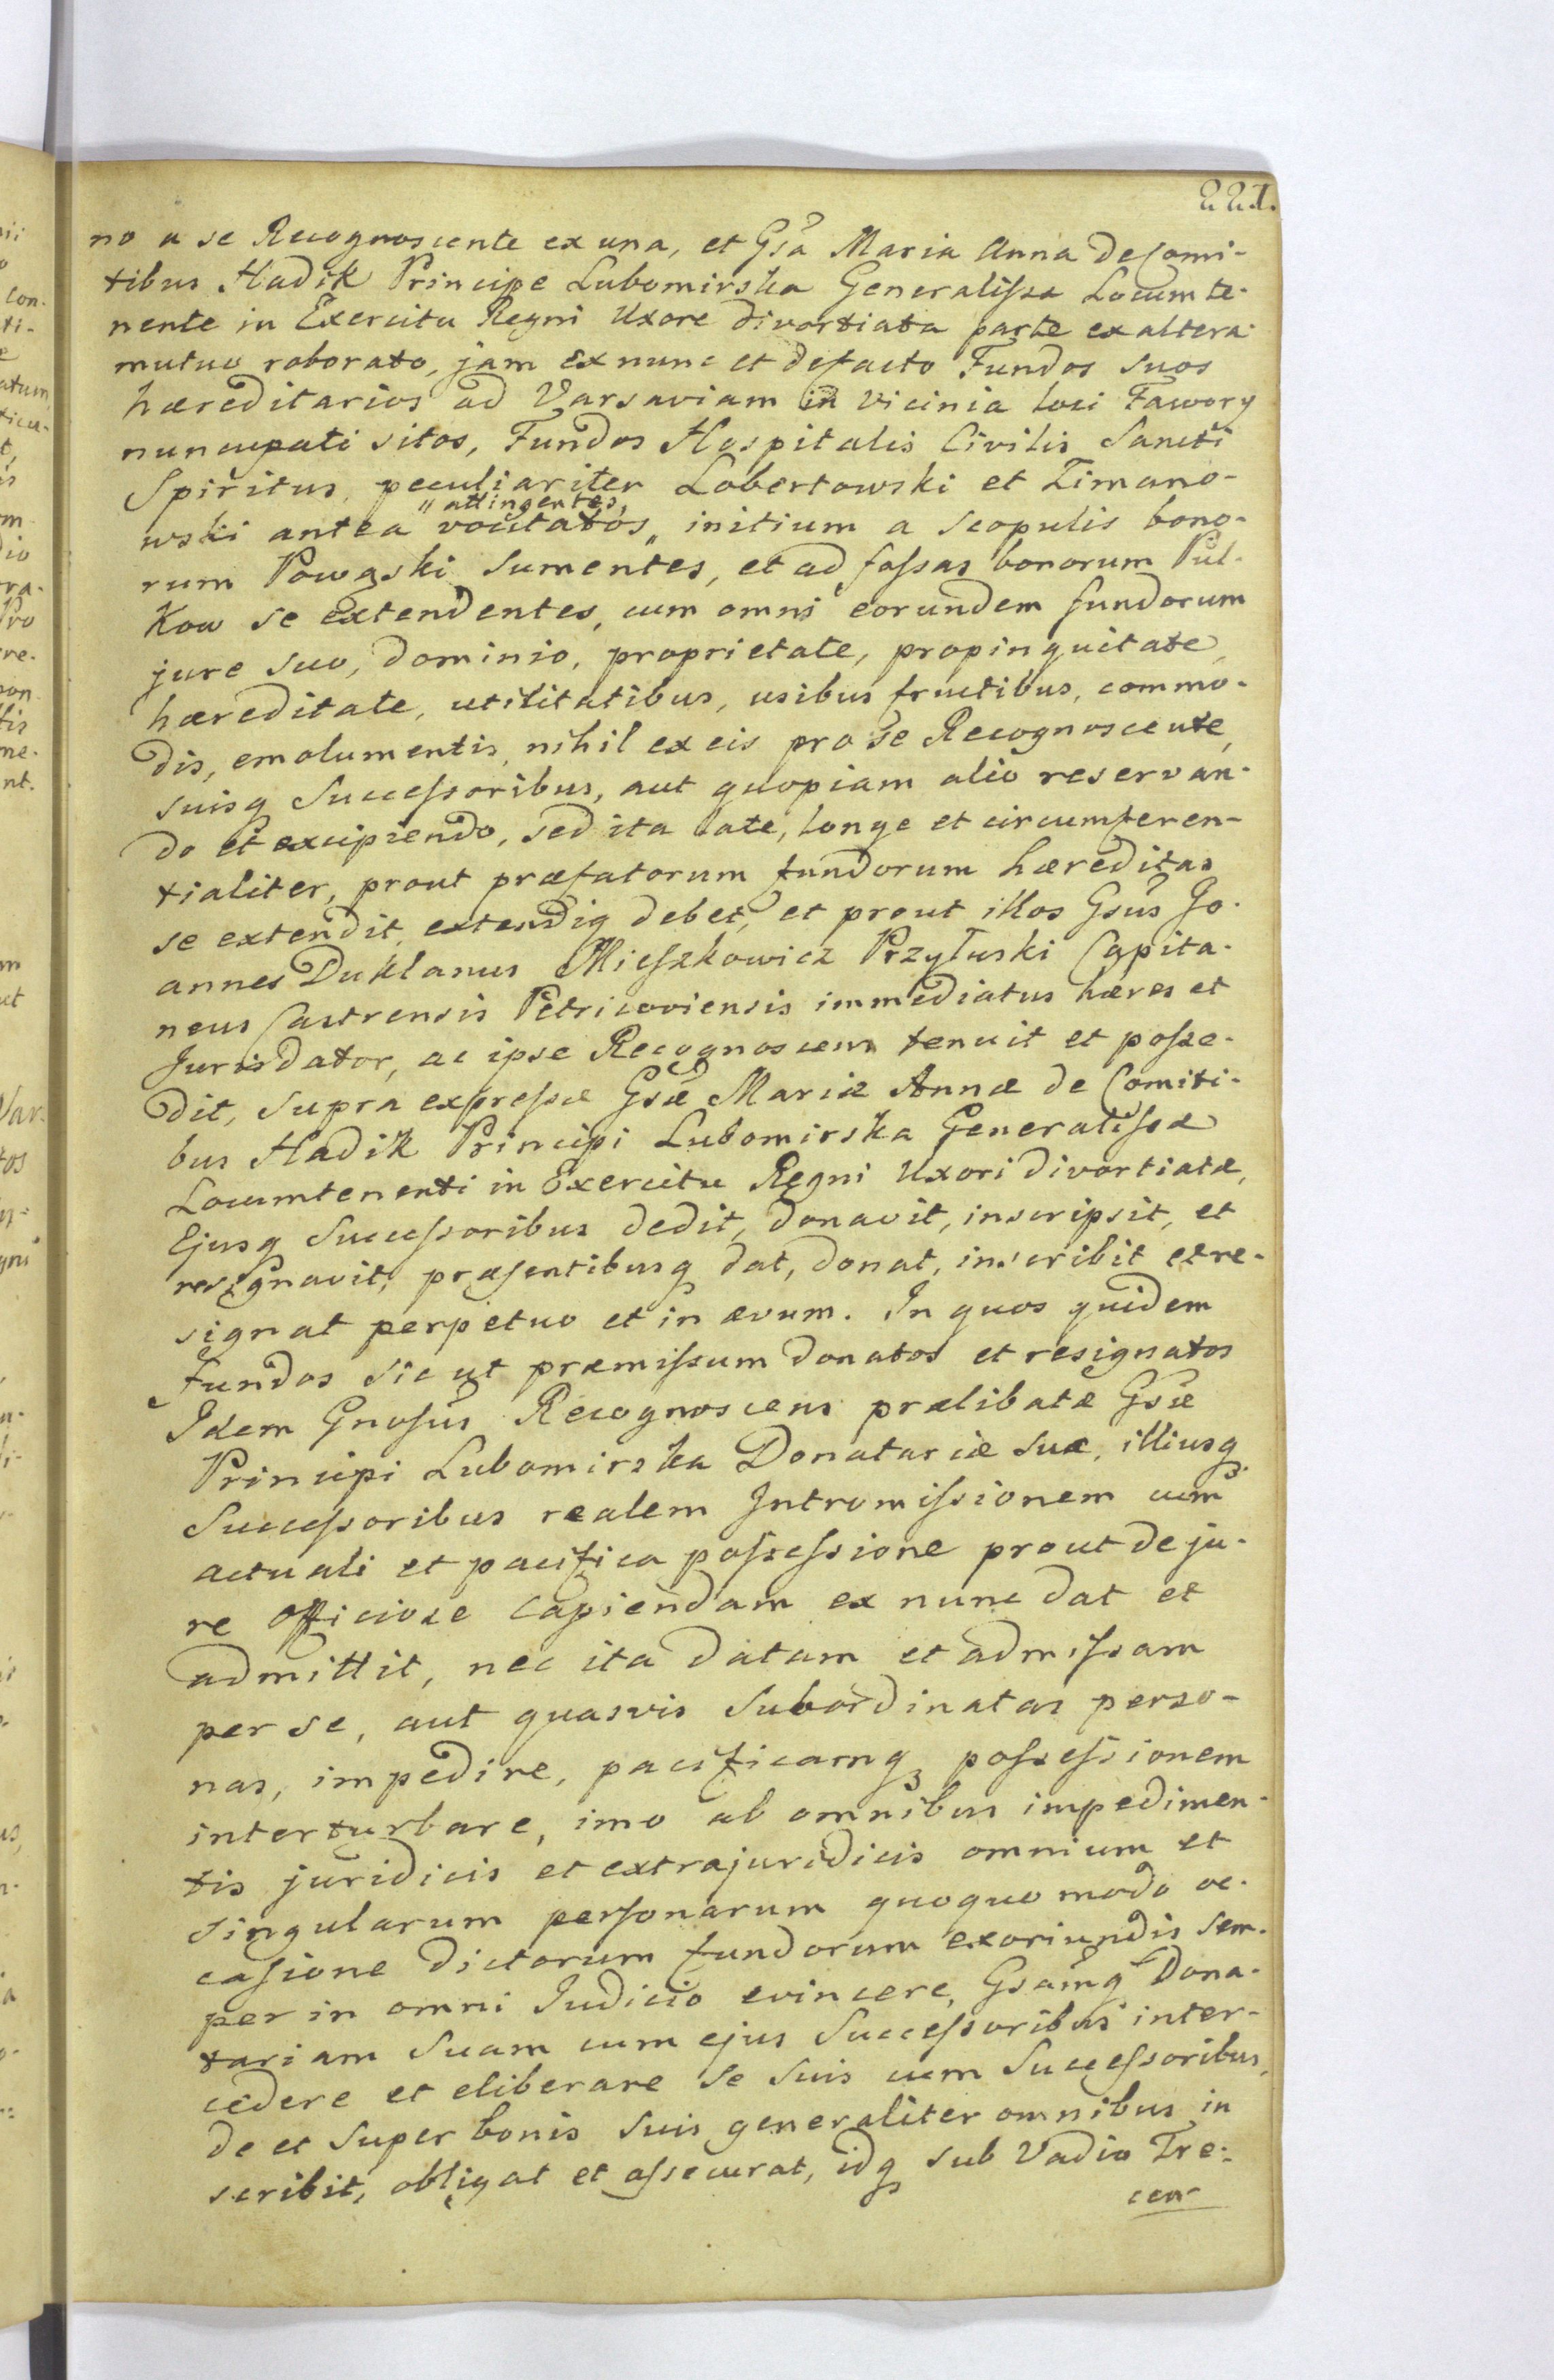 221.
no a se Recognoscente ex una, et Gsa Maria Anna de Comi-
tibus Hadik Principe Lubomirska Generalissa Locumte-
nente in Exercitu Regni Uxore divortiata parte ex altera
mutuo roborato, jam ex nunc et de facto Fundos suos
hæreditarios ad Varsaviam in vicinia loci Fawory
nuncupati sitos, Fundos Hospitalis Civilis Sancti
Spiritus, peculiariter Lobertowski et Timano-
"attingentes,
wski antea vocitatos „ initium a scopulis bono-
rum Powązki sumentes, et ad fossas bonorum Pul-
kow se extendentes, cum omni eorundem fundorum
jure suo, dominio, proprietate, propinquitate,
hæreditate, utilitatibus, usibus fructibus, commo-
dis, emolumentis, nihil ex eis pro se Recognoscente,
suisq Successoribus, aut quopiam alio reservan-
do et excipiendo, sed ita late, longe et circumferen-
tialiter, prout præfatorum fundorum hæreditas
se extendit, extendiq debet, et prout illos Gsus Jo-
annes Duklanus Mieszkowicz Przyłuski Capita-
neus Castrensis Petricoviensis immediatus hæres et
Jurisdator, ac ipse Recognoscens tenuit et posse-
dit, supra expressæ Gsæ Mariæ Annæ de Comiti-
bus Hadik Principi Lubomirska Generalissæ
Locumtenenti in Exercitu Regni Uxori divortiatæ,
Ejusq Successoribus dedit, donavit, inscripsit, et
resignavit, præsentibusq dat, donat, inscribit et re-
signat perpetuo et in ævum. In quos quidem
fundos sic ut præmissum donatos et resignatos
Idem Gnosus Recognoscens prælibatæ Gsæ
Principi Lubomirska Donatariæ suæ, illiusq
Successoribus realem Intromissionem cum
actuali et pacifica possessione prout de ju-
re officiose capiendam ex nunc dat et
admittit, nec ita datam et admissam
per se, aut quasvis subordinatas perso-
nas, impedire, pacificamq possessionem
interturbare, imo ab omnibus impedimen-
tis juridicis et extrajuridicis omnium et
singularum personarum quoquo modo oc-
casione dictorum fundorum exoriundis sem-
per in omni Judicio evincere, Gsamq Dona-
tariam suam cum ejus Successoribus inter-
cedere et eliberare se suis cum Successoribus,
de et super bonis suis generaliter omnibus in
scribit, obligat et assecurat, idq sub Vadio Tre-
cen-